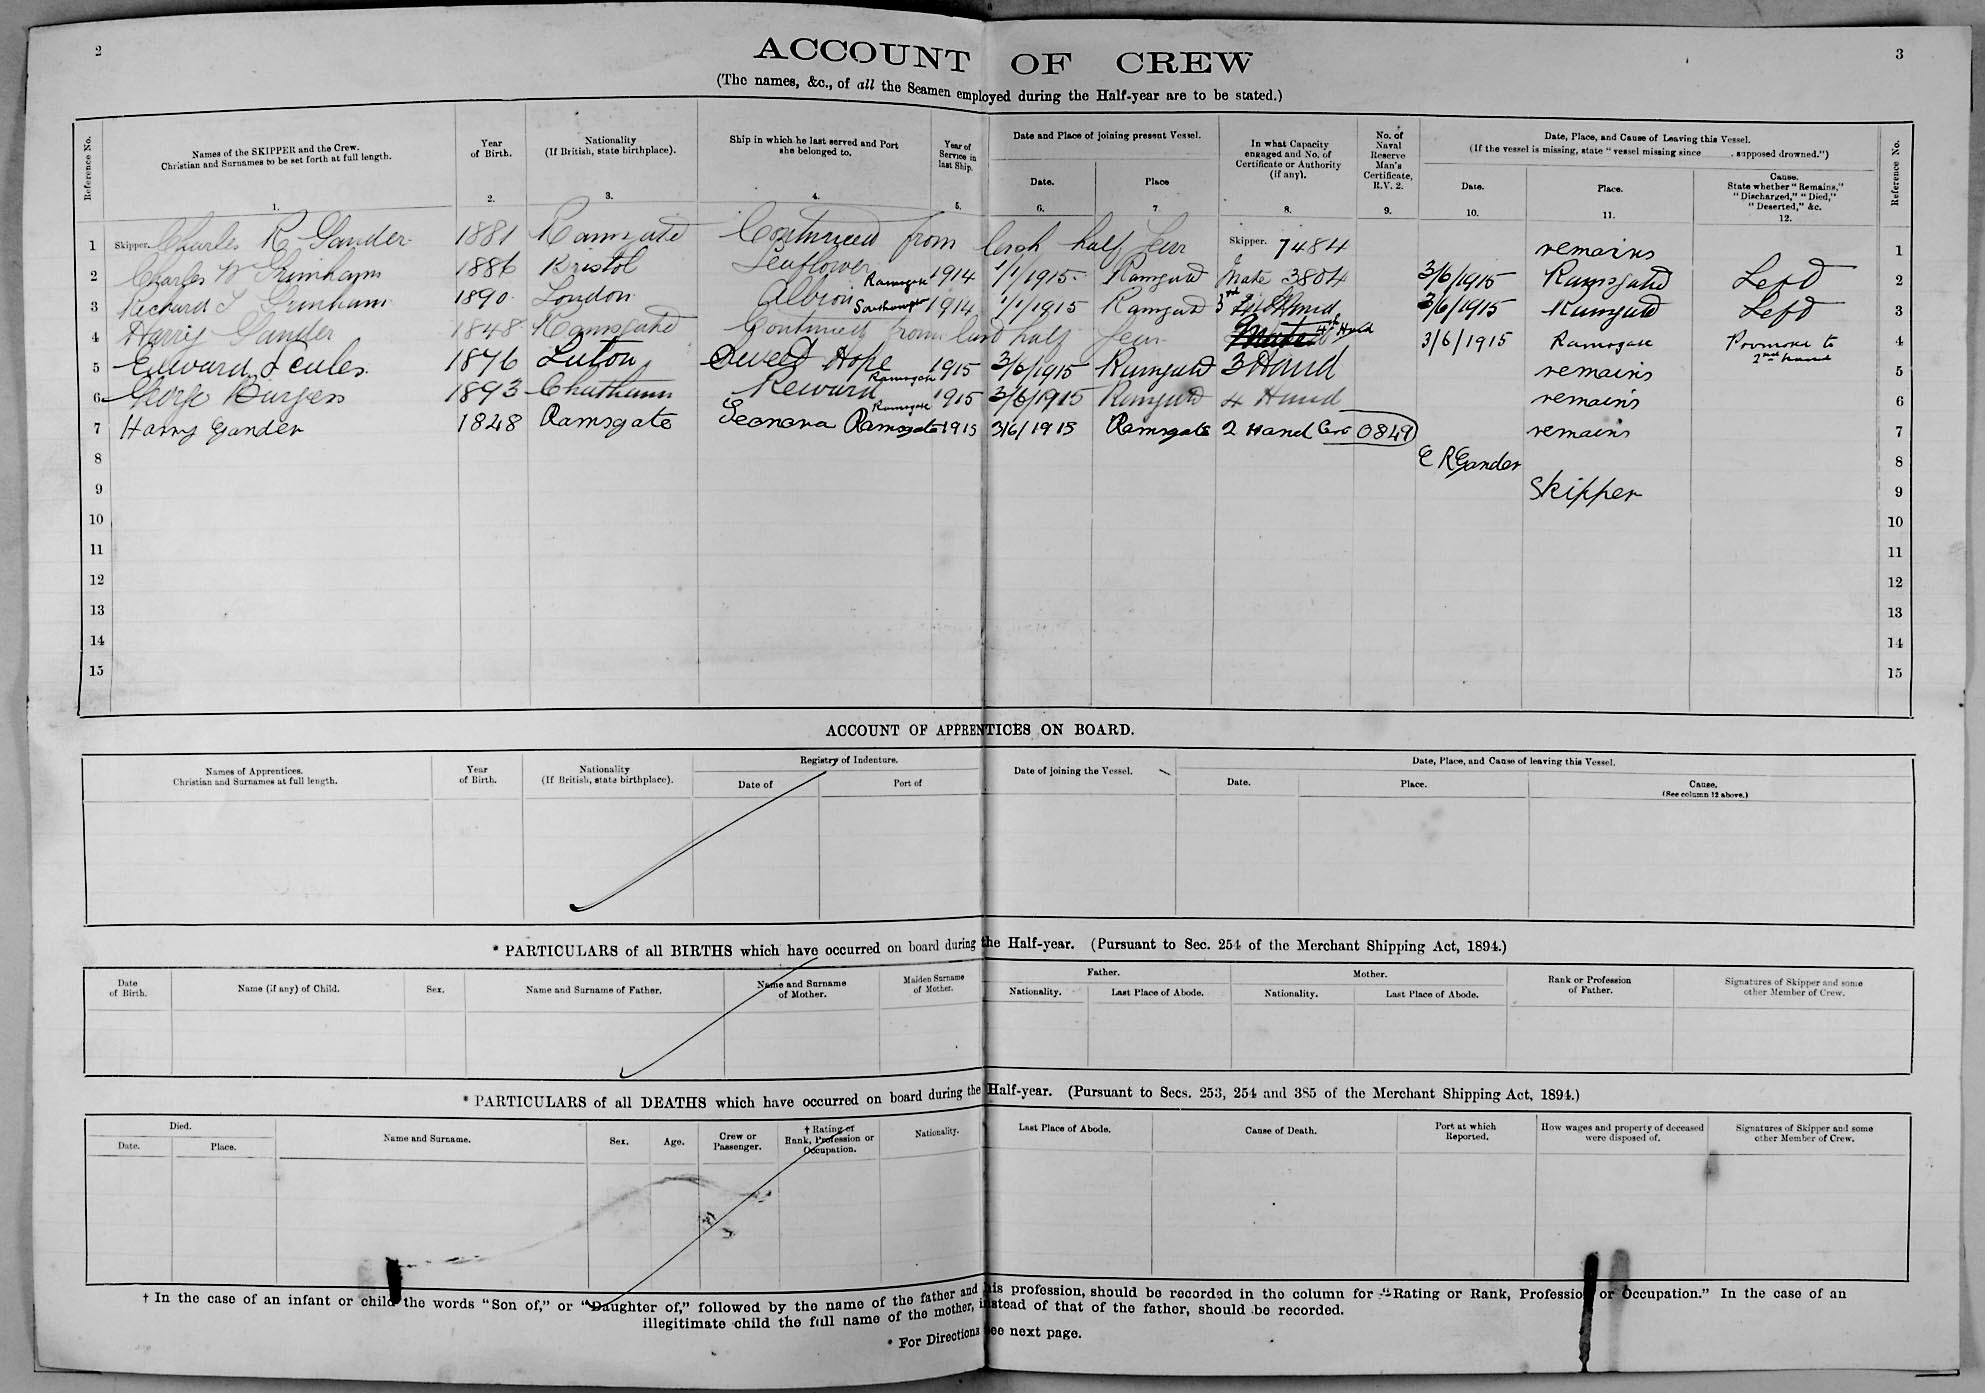 2
3
ACCOUNT OF CREW
(The names, &c., of all the Seamen employed during the Half-year are to be stated.)
Reference No.
Names of the SKIPPER and the Crew.
Christian and Surnames to be set forth at full length.
1.
Year
of Birth.
2.
Nationality
(If British, state birthplace).
3.
Ship in which he last served and Port
she belonged to.
4.
Year of
Service in
last Ship.
5.
Date and Place of joining present Vessel.
Date.
6.
Place
7.
In what Capacity
engaged and No. of
Certificate or Authority
(if any).
8.
No. of
Naval
Reserve
Man's
Certificate,
R.V. 2.
9.
Date, Place, and Cause of Leaving this Vessel.
(If the vessel is missing, state "vessel missing since , supposed drowned.")
Date.
10.
Place.
11.
Cause.
State whether "Remains,"
"Discharged," "Died,"
"Deserted," &c.
12.
Reference No.
1 Skipper. Charles R Gander 1881 Ramsgate Continued from last half Year Skipper. 7484 remains 1
2 Charles W Grimham 1886 Bristol Seaflower Ramsgate 1914 1/1/1915 Ramsgate Mate 3804 3/6/1915 Ramsgate Left 2
3 Richard T Grinham 1890 London Albion 1914 1/1/1915 Ramsgate 3rd Hand 3/6/1915 Ramsgate Left 3
4 Harry Gander 1848 Ramsgate Continued from last half Year 4th Hand 3/6/1915 Ramsgate Promoted to 2nd hand 4
5 Edward Scules 1876 Luton Sweet Hope Ramsgate 1915 3/6/1915 Ramsgate 3 Hand remains 5
6 George Burgess 1893 Chatham Reward Ramsgate 1915 3/6/1915 Ramsgate 4 Hand remains 6
7 Harry Gander 1848 Ramsgate Leonora Ramsgate 1915 3/6/1915 Ramsgate 2 Hand Cert 0849 remains 7
8 C R Gander 8
9 Skipper 9
10 10
11 11
12 12
13 13
14 14
15 15
ACCOUNT OF APPRENTICES ON BOARD.
Names of Apprentices.
Christian and Surnames at full length.
Year
of Birth.
Nationality
(If British, state birthplace).
Registry of Indenture.
Date of
Port of
Date of joining the Vessel.
Date, Place, and Cause of leaving this Vessel.
Date.
Place.
Cause.
(See column 12 above.)
* PARTICULARS of all BIRTHS which have occurred on board during the Half-year. (Pursuant to Sec. 254 of the Merchant Shipping Act, 1894.)
Date
of Birth.
Name (if any) of Child.
Sex.
Name and Surname of Father.
Name and Surname
of Mother.
Maiden Surname
of Mother.
Father.
Nationality.
Last Place of Abode.
Mother.
Nationality.
Last Place of Abode.
Rank or Profession
of Father.
Signatures of Skipper and some
other Member of Crew.
* PARTICULARS of all DEATHS which have occurred on board during the Half-year. (Pursuant to Secs. 253, 254 and 385 of the Merchant Shipping Act, 1894.)
Died.
Date.
Place.
Name and Surname.
Sex.
Age.
Crew or
Passenger.
† Rating or
Rank, Profession or
Occupation.
Nationality.
Last Place of Abode.
Cause of Death.
Port at which
Reported.
How wages and property of deceased
were disposed of.
Signatures of Skipper and some
other Member of Crew.
† In the case of an infant or child the words "Son of," or "Daughter of," followed by the name of the father and his profession, should be recorded in the column for "Rating or Rank, Profession or Occupation." In the case of an
illegitimate child the full name of the mother, instead of that of the father, should be recorded.
* For Directions see next page.